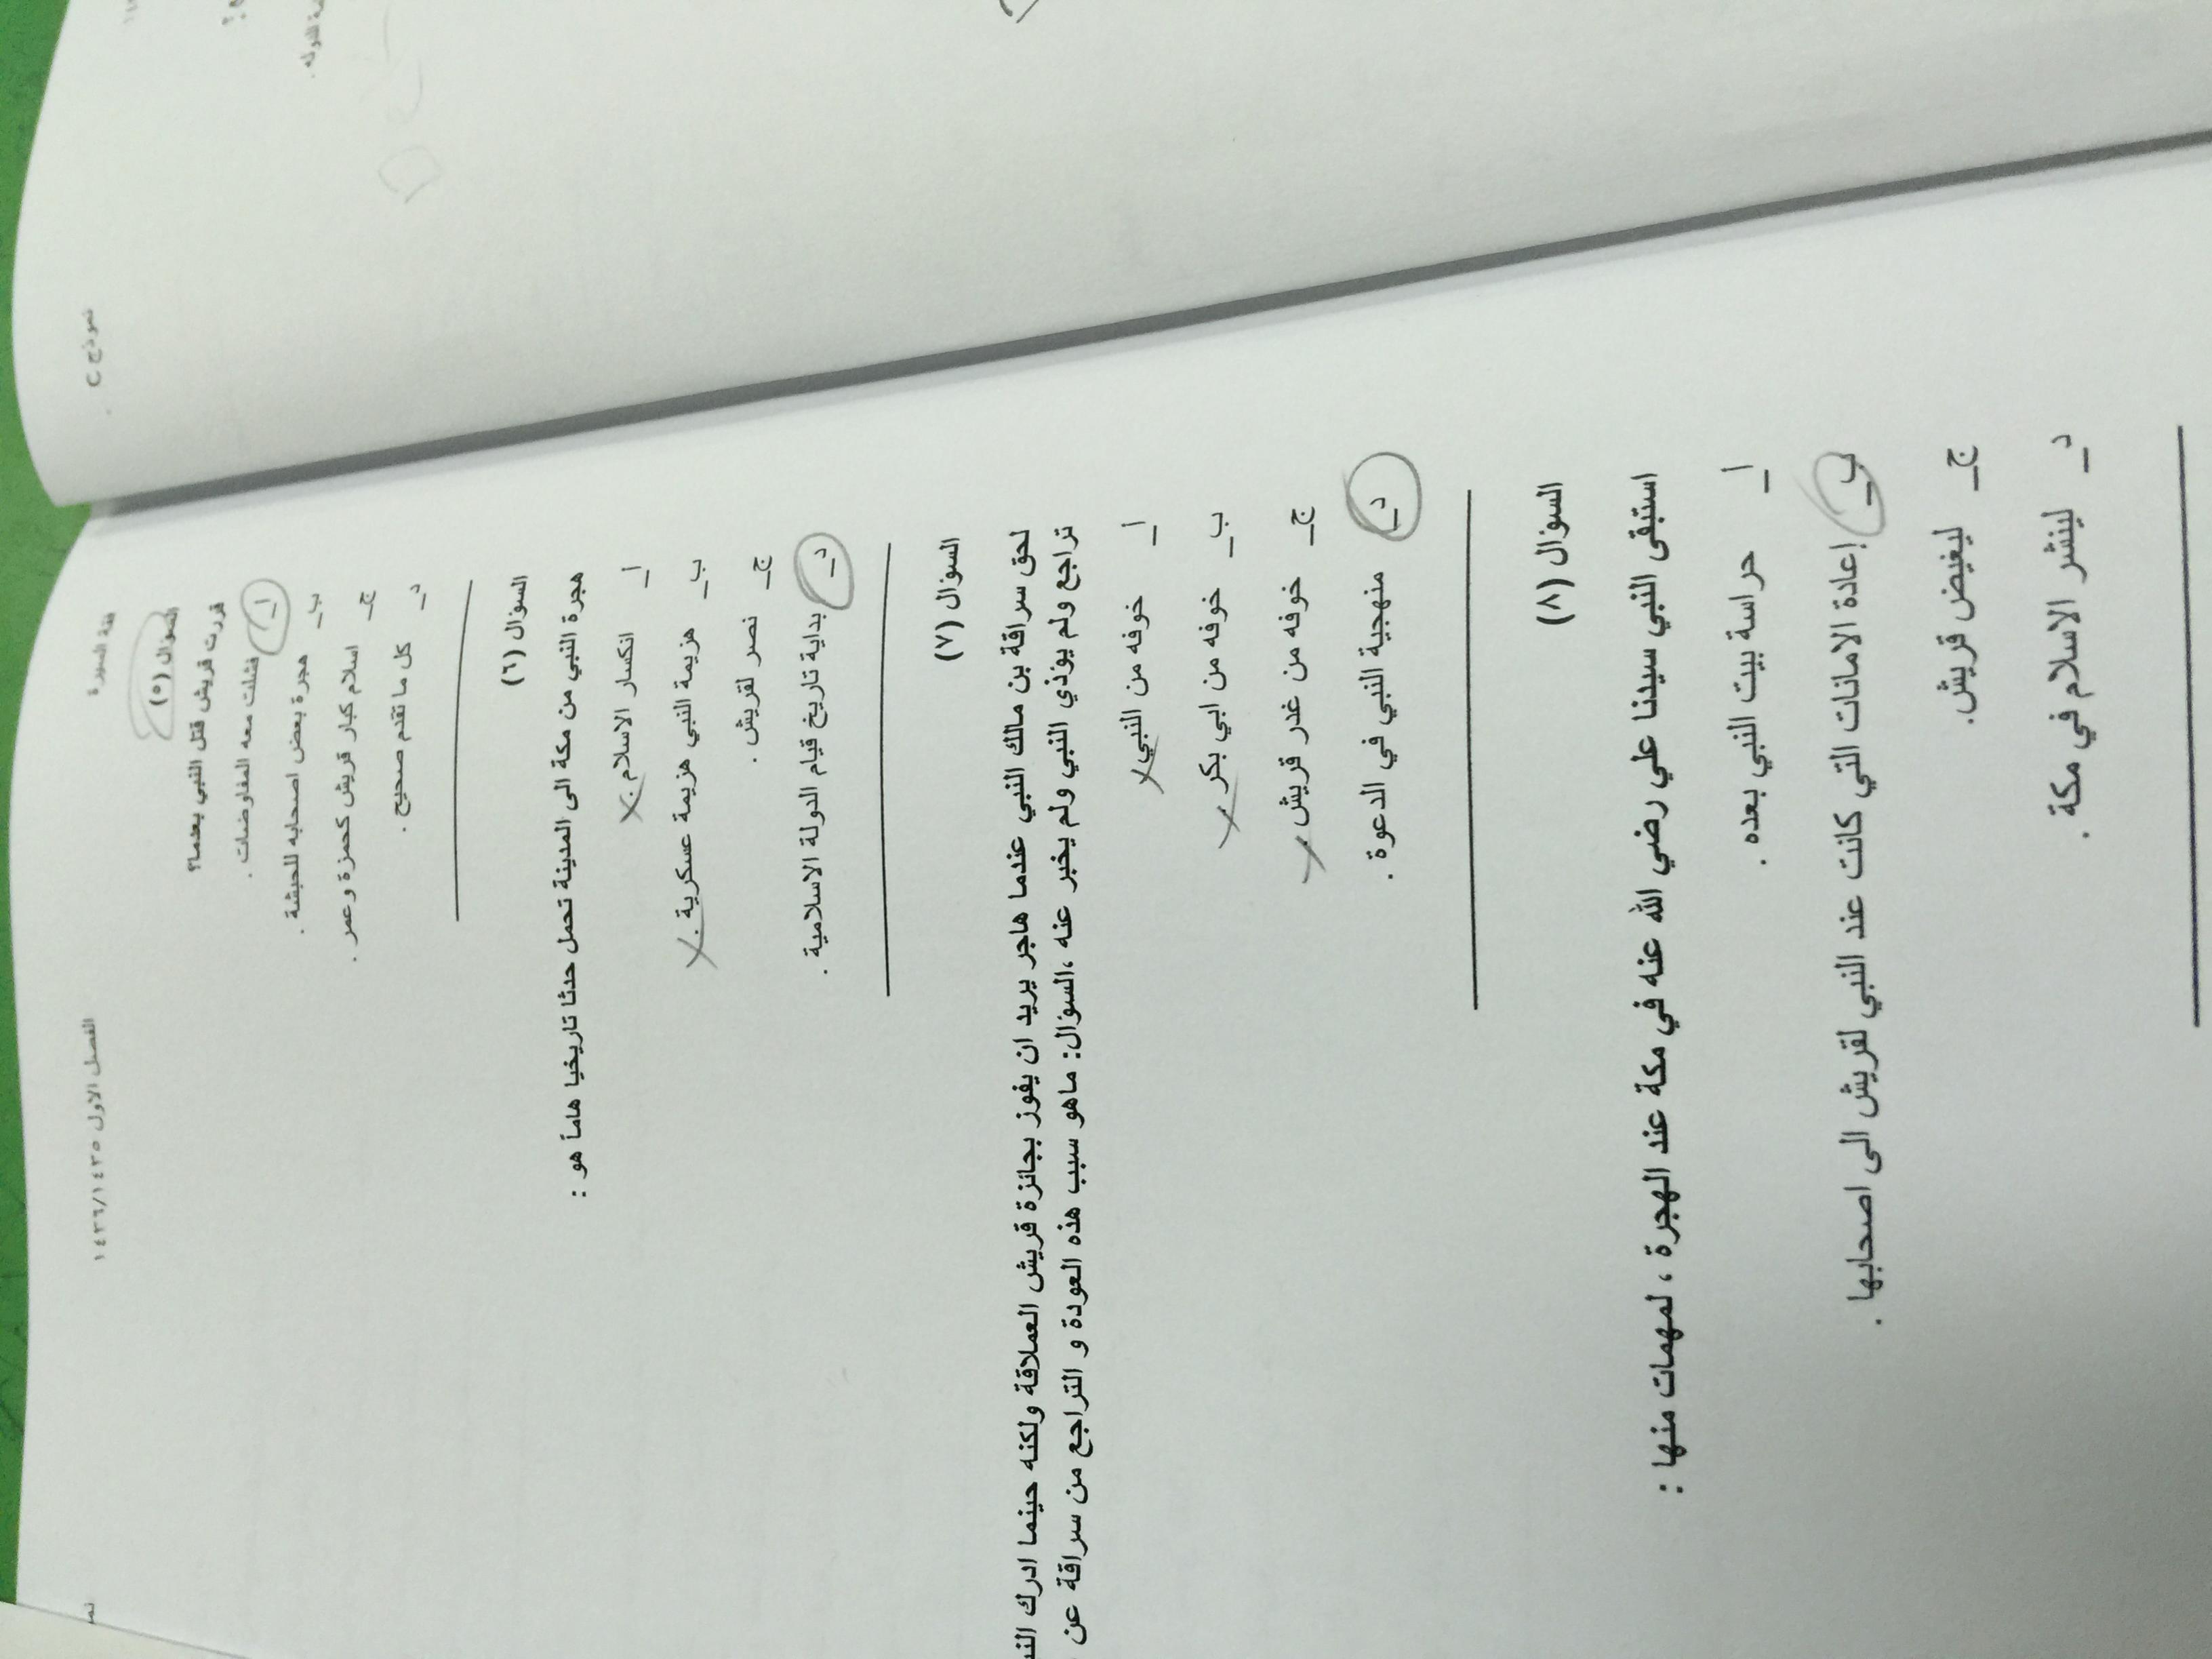 نموذج ج
فقه السيرة الفصل الاول ١٤٣٦/١٤٣٥
السؤال (٥)
قررت قريش قتل النبي بعدما؟
ا_ فشلت معه المفاوضات .
ب_ هجرة بعض اصحابه للحبشة .
ج_ اسلام كبار قريش كحمزة وعمر .
د_ كل ما تقدم صحيح .
السؤال (٦)
هجرة النبي من مكة الى المدينة تحمل حدثا تاريخيا هاماً هو :
ا_ انكسار الاسلام .
ب_ هزيمة النبي هزيمة عسكرية .
ج_ نصر لقريش .
د_ بداية تاريخ قيام الدولة الاسلامية .
السؤال (٧)
لحق سراقة بن مالك النبي عندما هاجر يريد ان يفوز بجائزة قريش العملاقة ولكنه حينما ادرك
تراجع ولم يوذي النبي ولم يخبر عنه ،السؤال: ماهو سبب هذه العودة و التراجع من سراقة عن
ا_ خوفه من النبي
ب_ خوفه من ابي بكر .
ج_ خوفه من غدر قريش .
د_ منهجية النبي في الدعوة .
السؤال (٨)
استبقى النبي سيدنا علي رضي الله عنه في مكة عند الهجرة ، لمهمات منها :
ا_ حراسة بيت النبي بعده .
ب_ إعادة الامانات التي كانت عند النبي لقريش الى اصحابها .
ج_ ليغيض قريش.
د_ لينشر الاسلام في مكة .